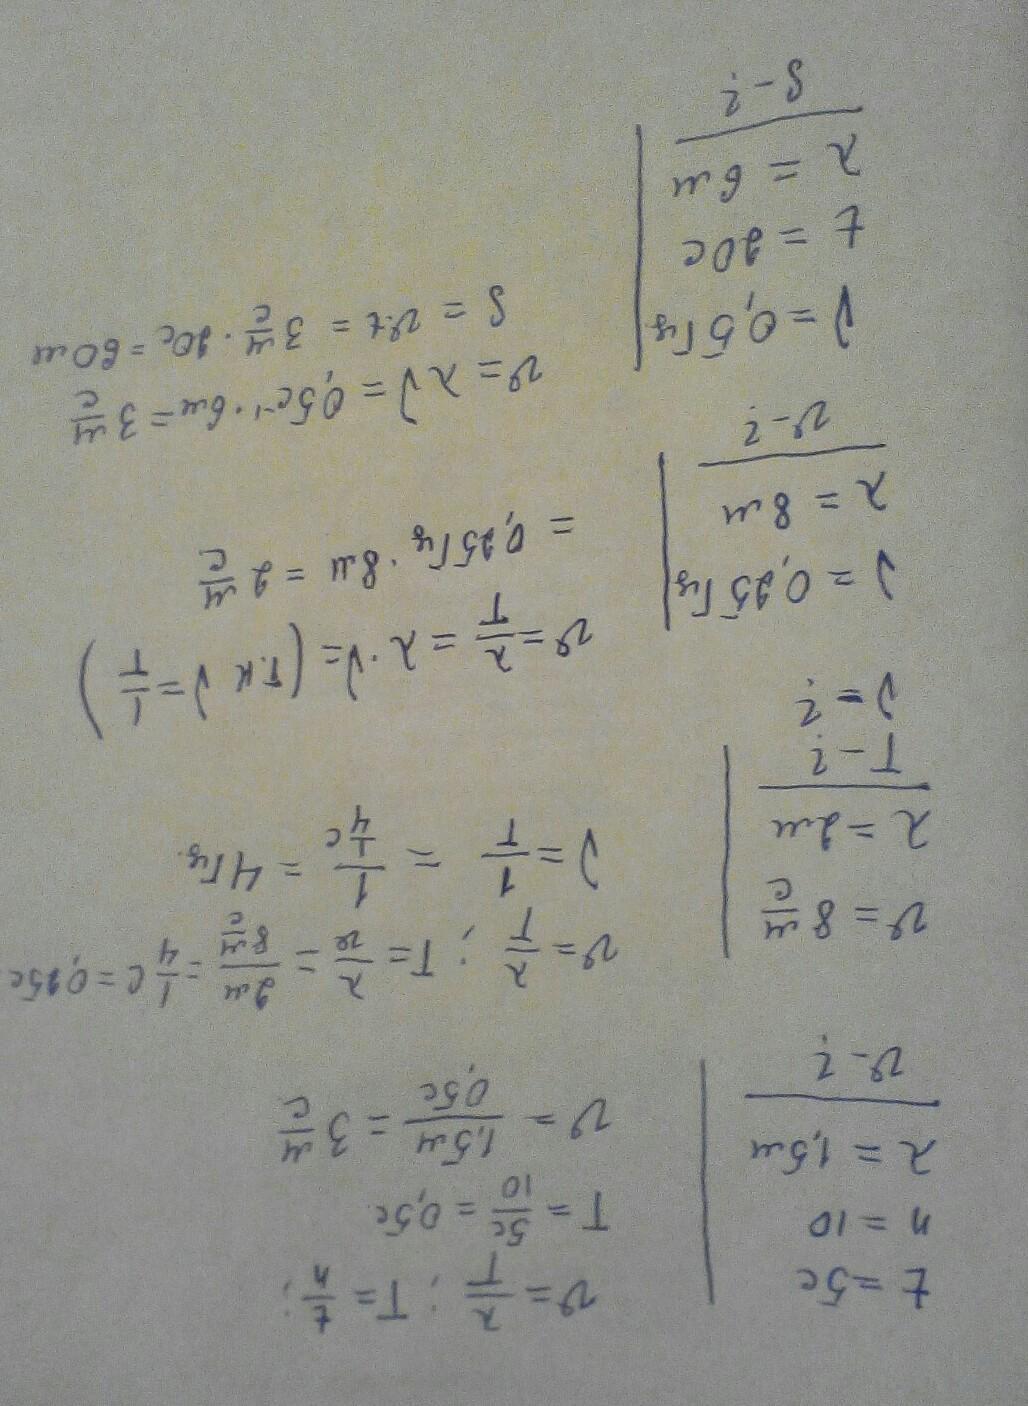 t = 5c
n = 10
λ = 1,5м
υ - ?
υ = λ/T ; T = t/n ;
T = 5c/10 = 0,5c
υ = 1,5м/0,5c = 3 м/c
υ = 8 м/c
λ = 2м
T - ?
ν - ?
υ = λ/T ; T = λ/υ = 2м/8 м/c = 1/4 c = 0,25c
ν = 1/T = 1/(1/4 c) = 4Гц.
ν = 0,25Гц
λ = 8м
υ - ?
υ = λ/T = λ · ν = (т.к ν = 1/T)
= 0,25Гц · 8м = 2 м/c
ν = 0,5Гц.
t = 20c
λ = 6м
S - ?
υ = λν = 0,5c⁻¹ · 6м = 3 м/c
S = υ·t = 3 м/c · 20c = 60м